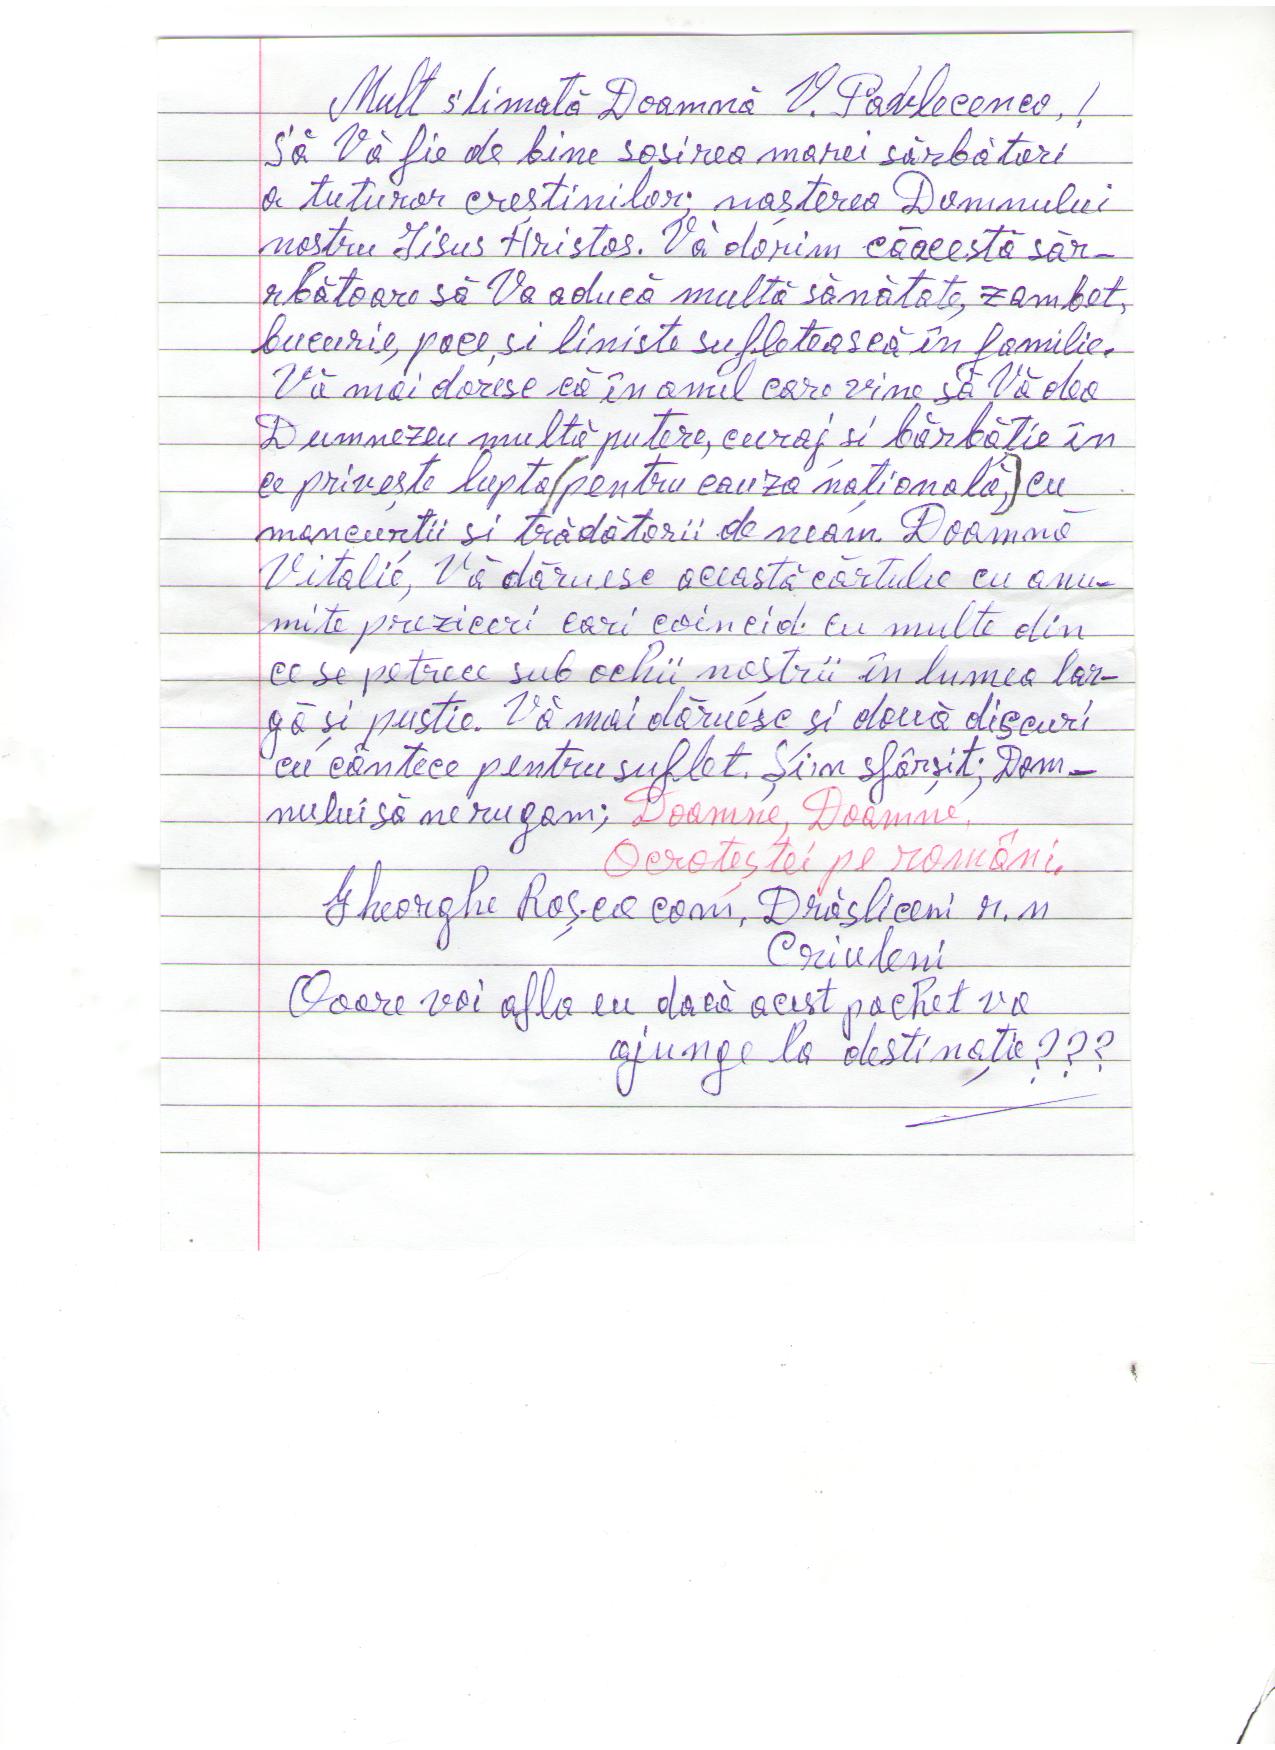 Mult stimată Doamnă V. Pavlecenco,!
Să Vă fie de bine sosirea marei sărbători
a tuturor creștinilor; nașterea Domnului
nostru Iisus Hristos. Vă dorim căacestă săr-
rbătoare să Va aducă multă sănătate, zambet,
bucurie, pace, si liniste sufletească în familie.
Vă mai doresc că în anul care vine să Vă dea
Dumnezeu multă putere, curaj si bărbăție în
ce privește lupta (pentru cauza natională,) cu
mancurtii si trădătorii de neam. Doamnă
Vitalie, Vă dăruesc această cărtulie cu anu-
mite preziceri cari coincid cu multe din
ce se petrece sub ochii nostrii în lumea lar-
gă și pustie. Vă mai dăruesc si două discuri
cu cântece pentru suflet. Și în sfârșit; Dom-
nului să ne rugam; Doamne, Doamne,
Ocroteștei pe români.
Gheorghe Roșca com. Drăsliceni r.n
Criuleni
Ooare voi afla eu dacă acest pachet va
ajunge la destinație???